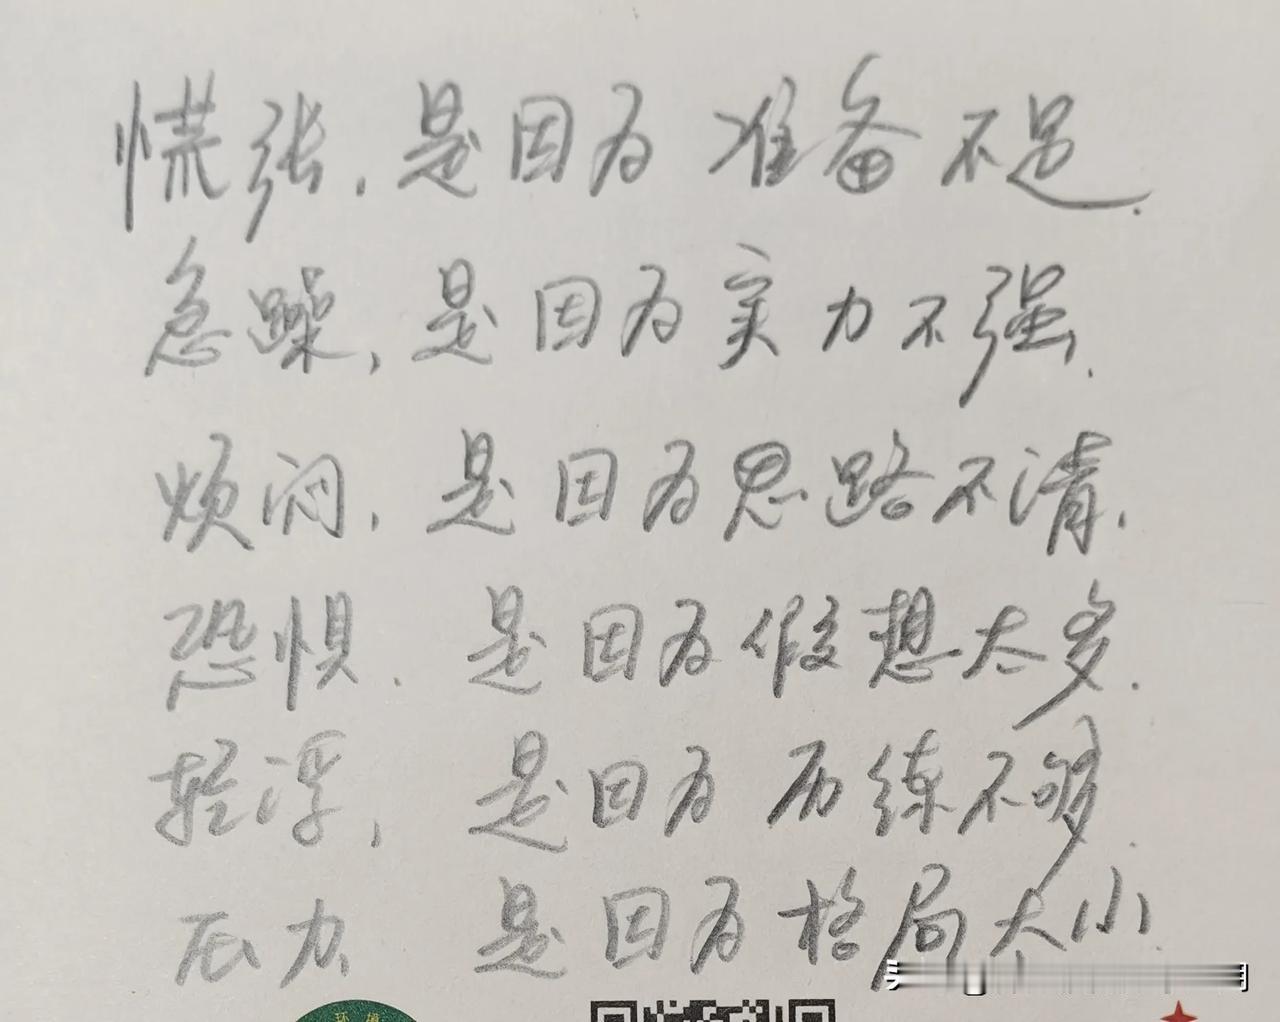 慌张，是因为准备不足.
急躁，是因为实力不强.
烦闷，是因为思路不清.
恐惧.是因为假想太多.
轻浮，是因为历练不够.
压力、是因为格局太小.
环境